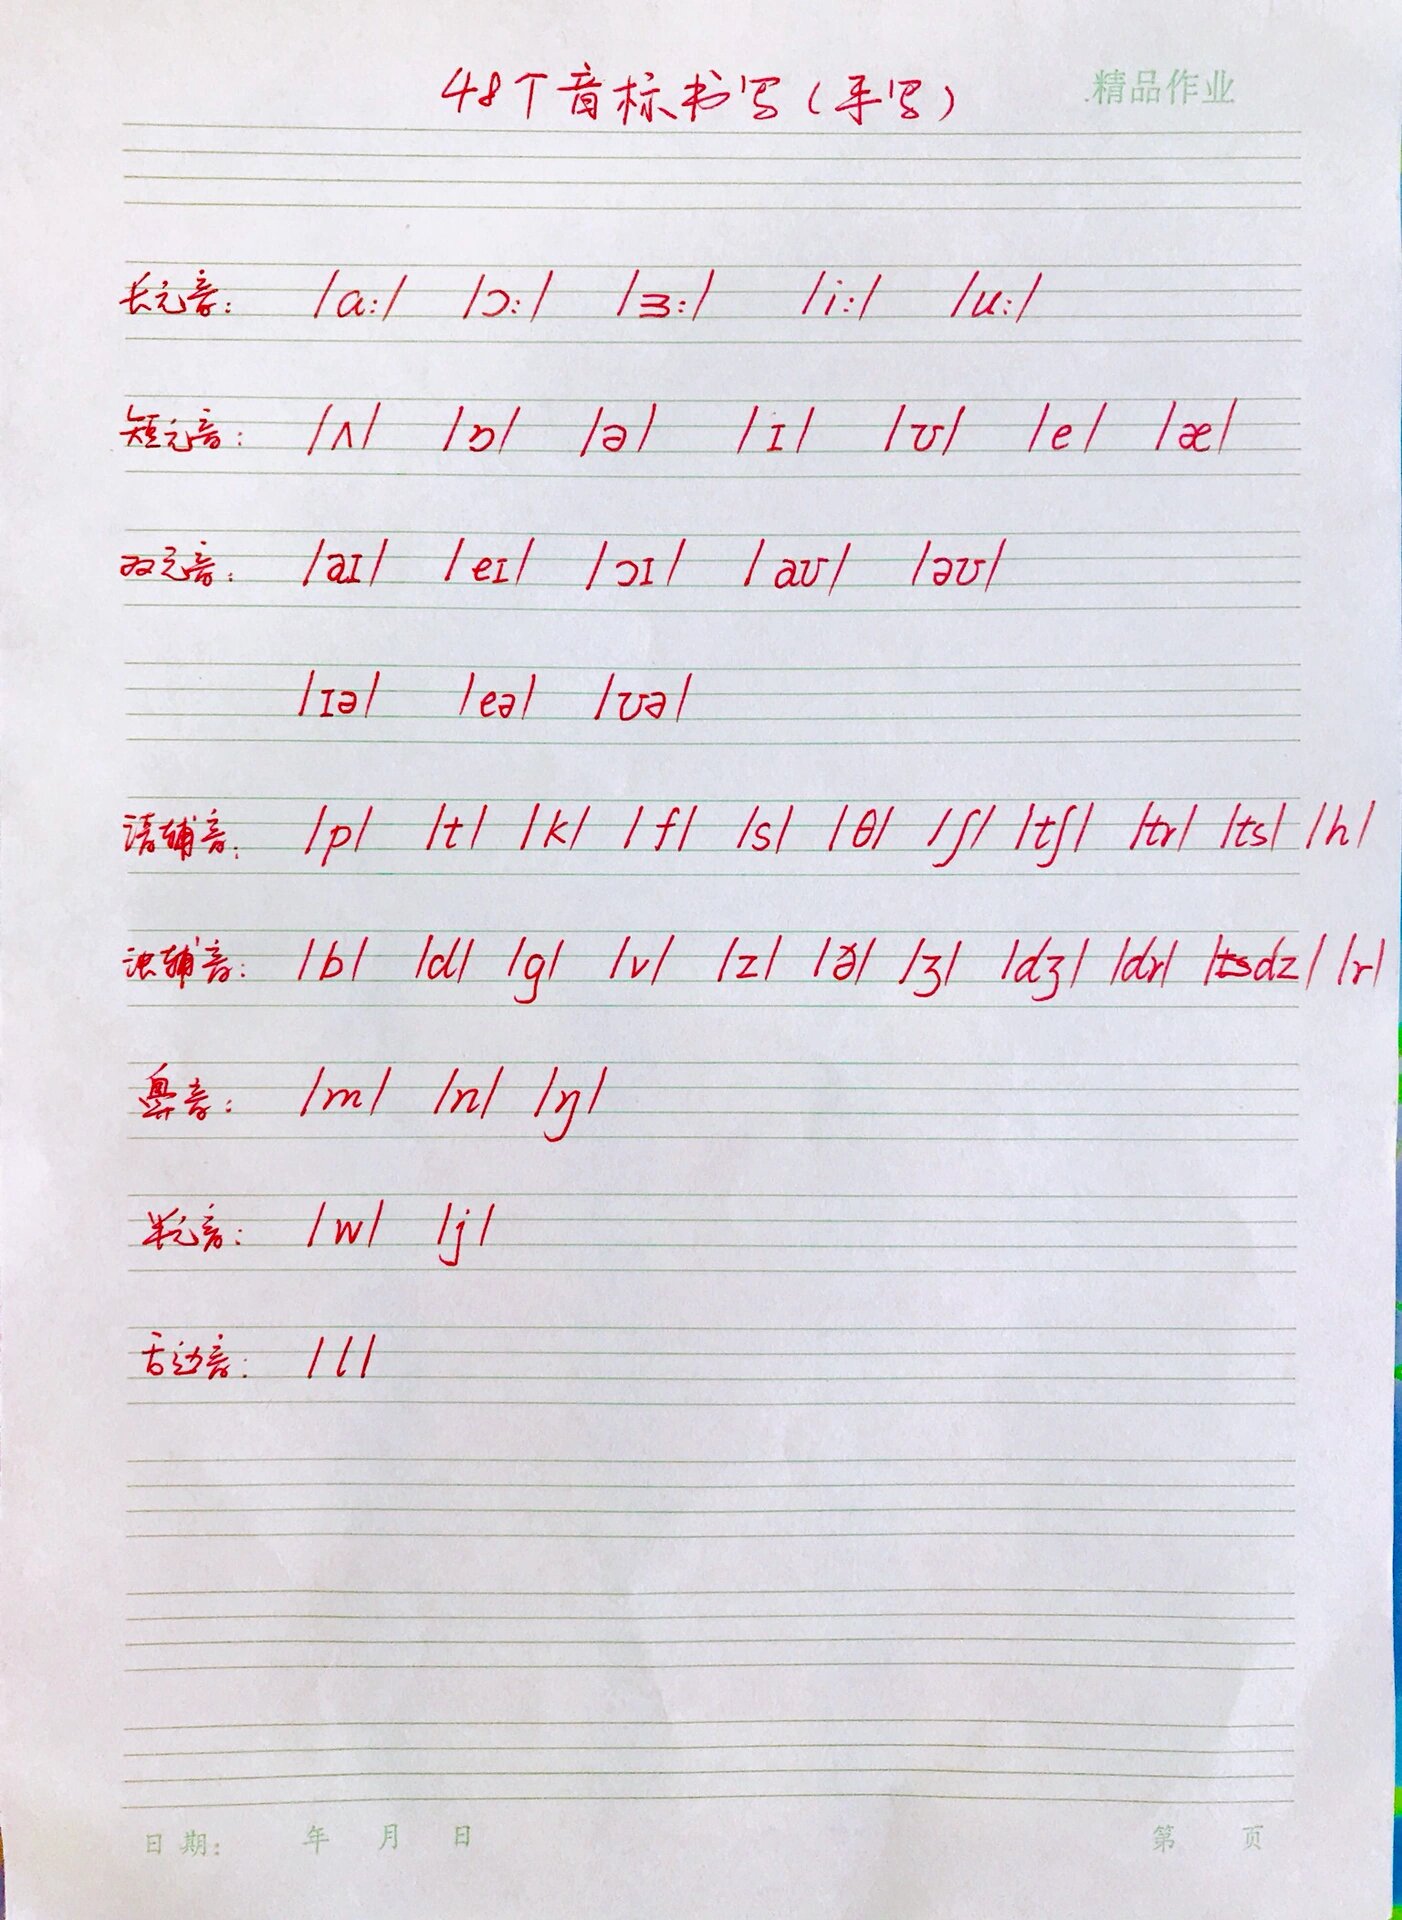 48个音标书写(手写) 精品作业
长元音: /a:/ /ɔ:/ /ɜ:/ /i:/ /u:/
短元音: /ʌ/ /ɒ/ /ə/ /ɪ/ /ʊ/ /e/ /æ/
双元音: /aɪ/ /eɪ/ /ɔɪ/ /aʊ/ /əʊ/
/ɪə/ /eə/ /ʊə/
清辅音: /p/ /t/ /k/ /f/ /s/ /θ/ /ʃ/ /tʃ/ /tr/ /ts/ /h/
浊辅音: /b/ /d/ /g/ /v/ /z/ /ð/ /ʒ/ /dʒ/ /dr/ /dz/ /r/
鼻音: /m/ /n/ /ŋ/
半元音: /w/ /j/
舌边音: /l/
日期: 年 月 日 第 页